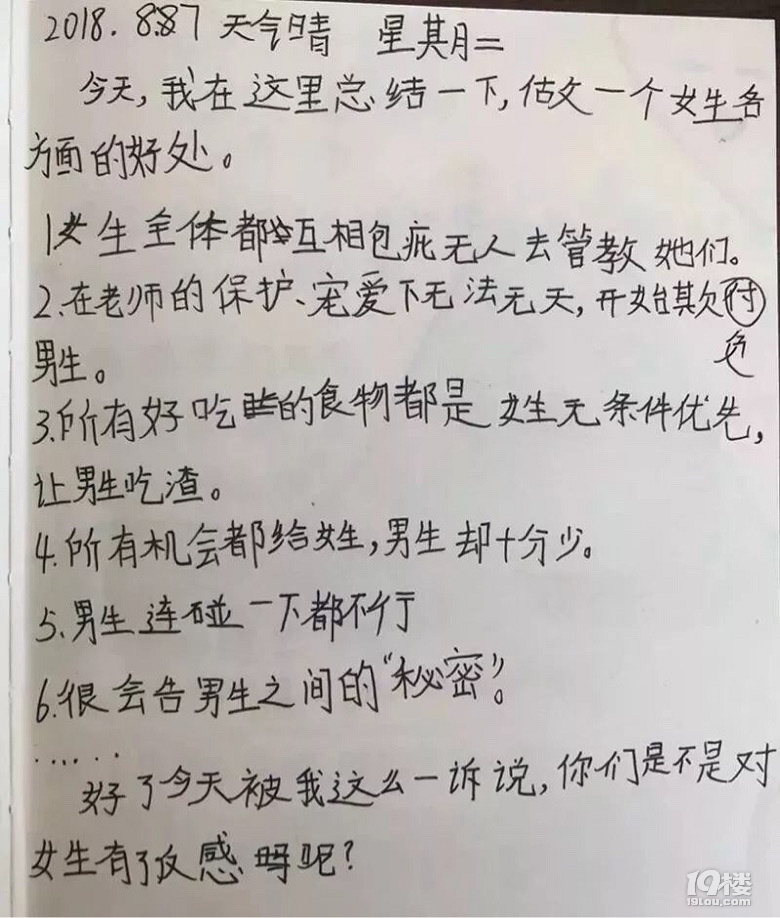 2018.8.87 天气晴 星期二
今天,我在这里总结一下,估文一个女生各
方面的好处。
1.女生全体都互相包庇无人去管教她们。
2.在老师的保护、宠爱下无法无天,开始其欠付
负
男生。
3.所有好吃的食物都是女生无条件优先,
让男生吃渣。
4.所有机会都给女生,男生却十分少。
5.男生连碰一下都不行
6.很会告男生之间的“秘密”。
......
好了今天被我这么一诉说,你们是不是对
女生有了反感呢?
19楼
19lou.com